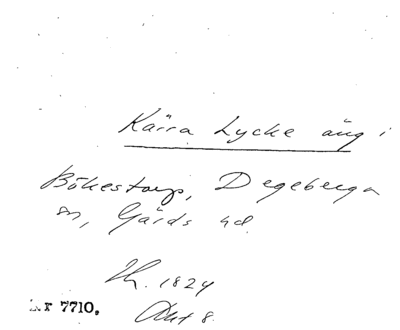 Kärra Lycke äng i
Bökestorp, Degeberga
sn, Gärds hd.
Th. 1824
Akt 8.
Nr 7710.